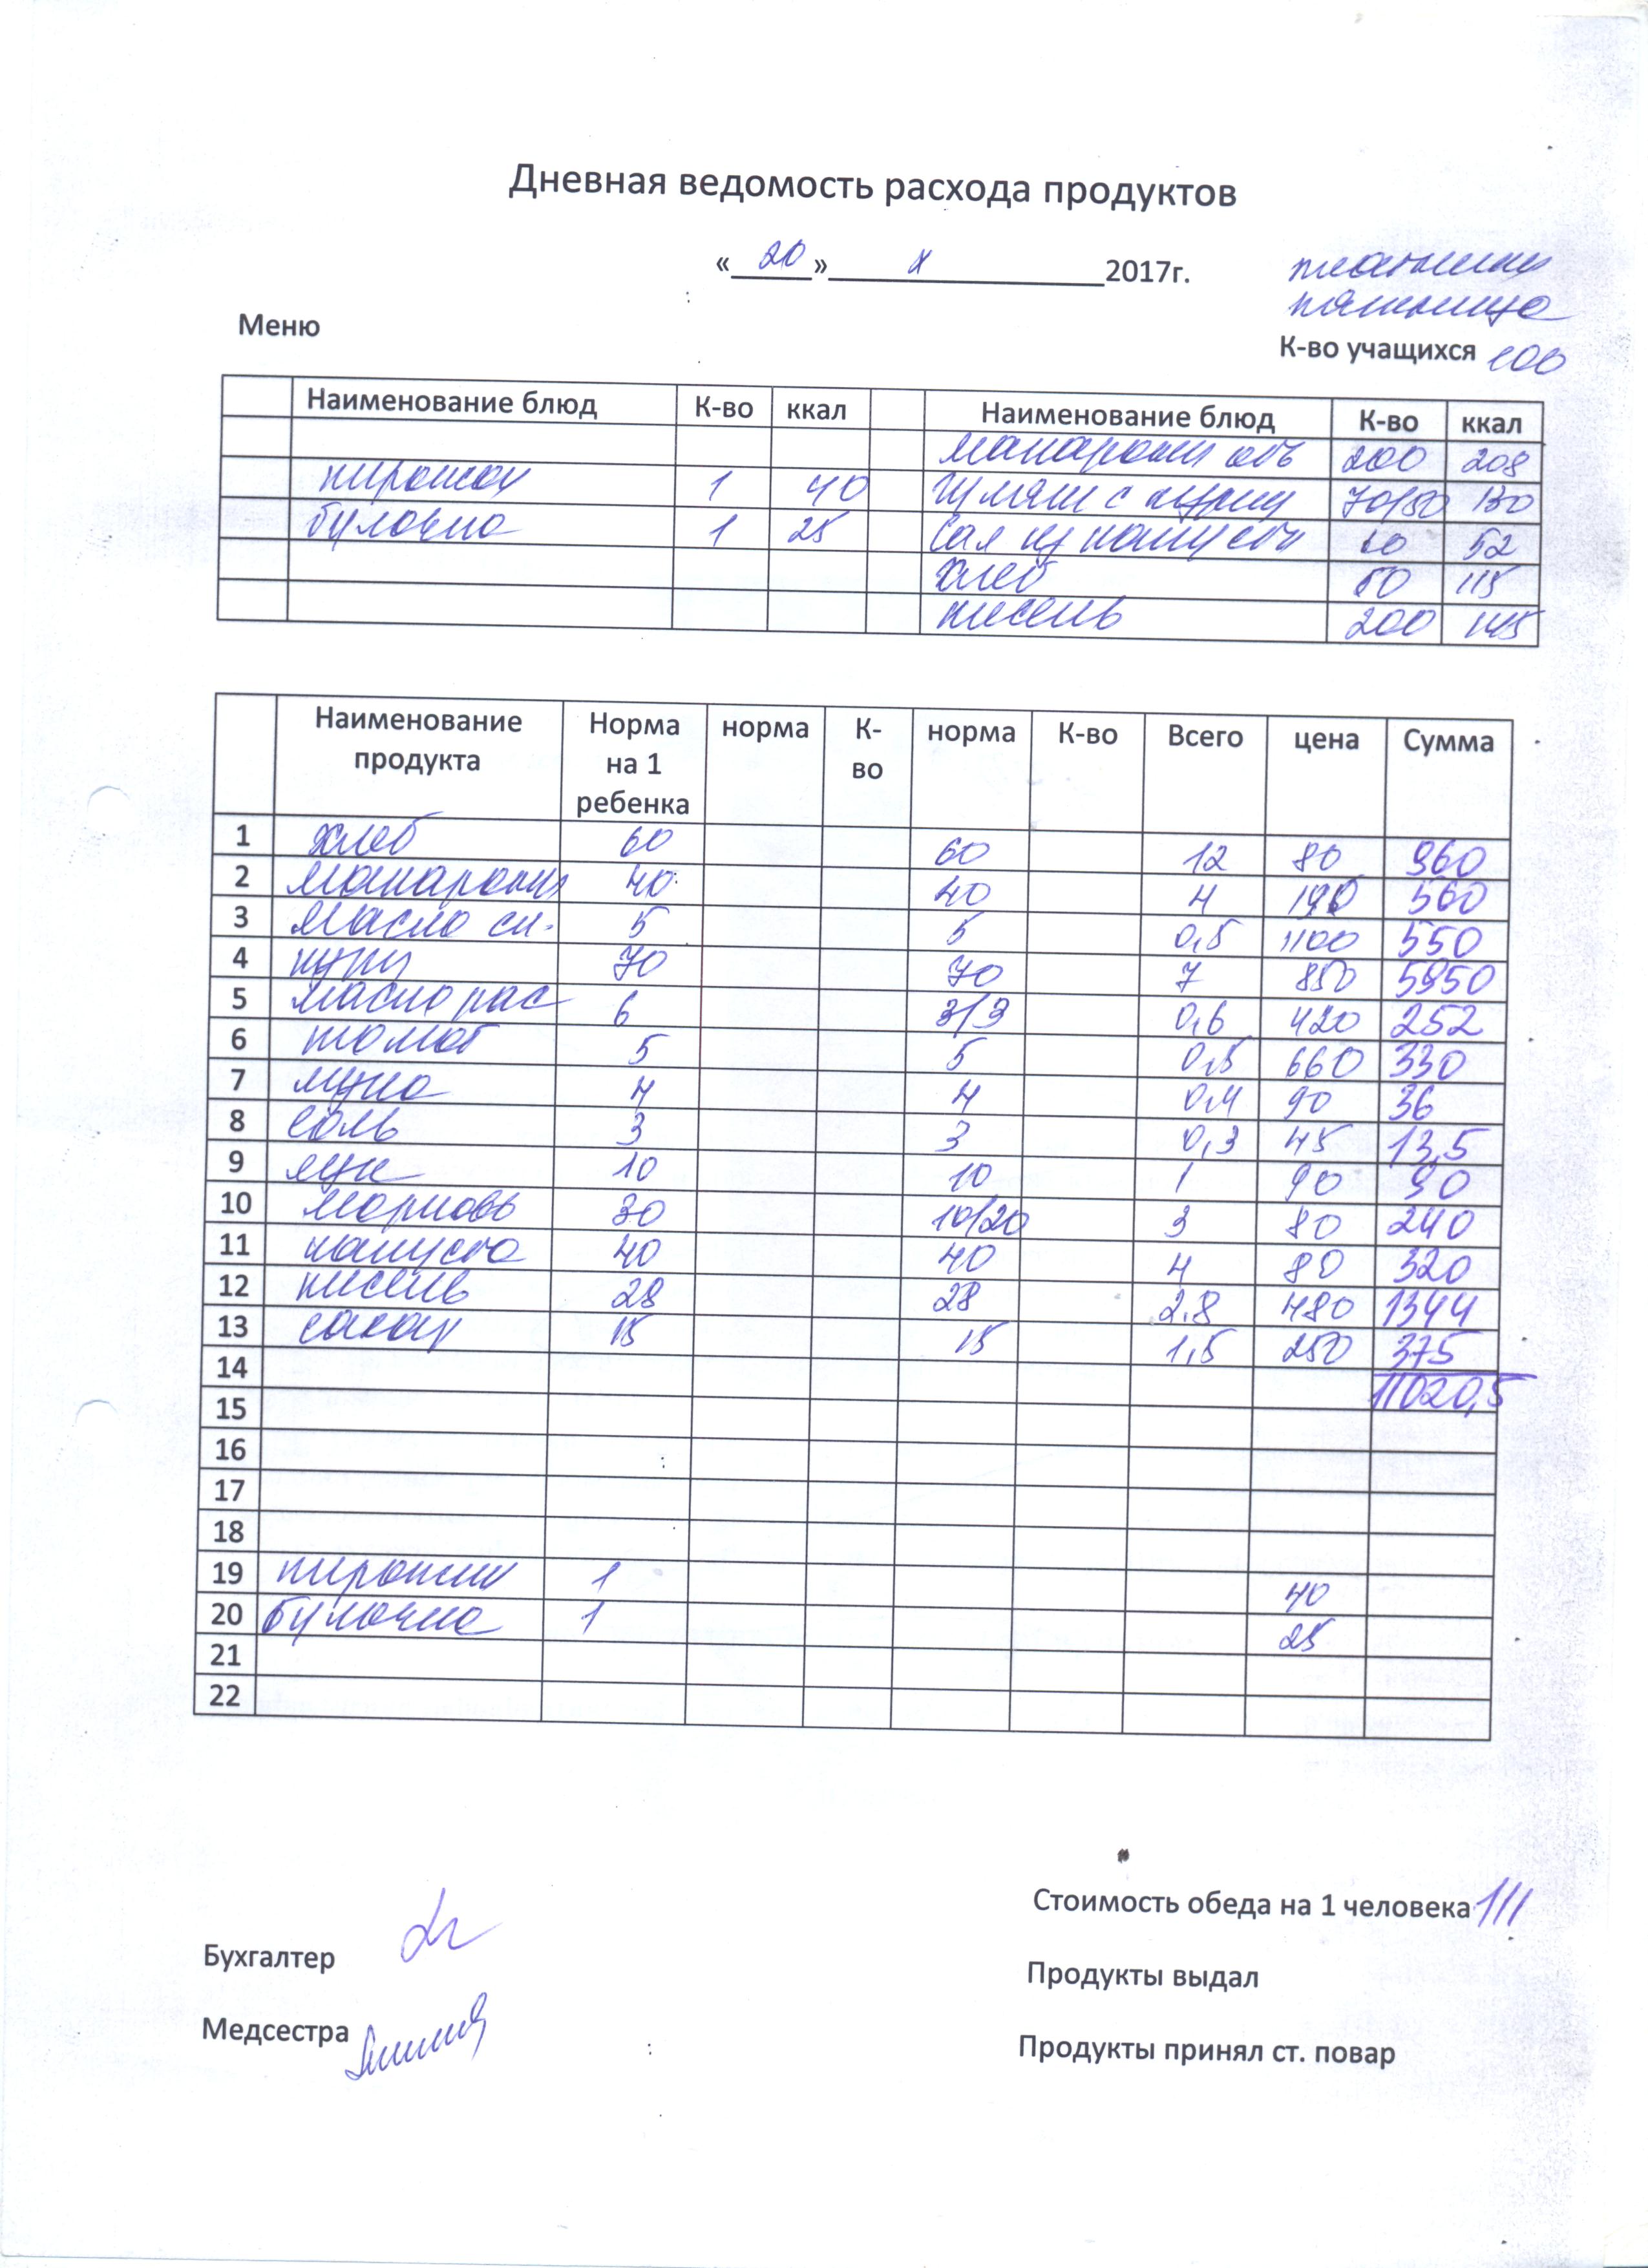 Дневная ведомость расхода продуктов
«20» X 2017г.
пятница
Меню
К-во учащихся 100
Наименование блюд К-во ккал Наименование блюд К-во ккал
макароны отв 200 208
пирожок 1 40 Гуляш с куриц 70/50 130
булочка 1 25 Сал из капусты 60 52
хлеб 60 115
кисель 200 145
Наименование продукта Норма на 1 ребенка норма К-во норма К-во Всего цена Сумма
1 хлеб 60 60 12 80 960
2 макароны 40 40 4 560
3 Масло сл. 5 5 0,5 1100 550
4 куры 70 70 7 850 5950
5 масло рас 6 3/3 0,6 420 252
6 томат 5 5 0,5 660 330
7 мука 4 4 0,4 90 36
8 соль 3 3 0,3 45 13,5
9 лук 10 10 1 90 90
10 морковь 30 10/20 3 80 240
11 капуста 40 40 4 80 320
12 кисель 28 28 2.8 480 1344
13 сахар 15 15 1,5 250 375
14 11020,5
15
16
17
18
19 пирожки 1 40
20 булочка 1 25
21
22
Стоимость обеда на 1 человека 111
Бухгалтер
Продукты выдал
Медсестра
Продукты принял ст. повар